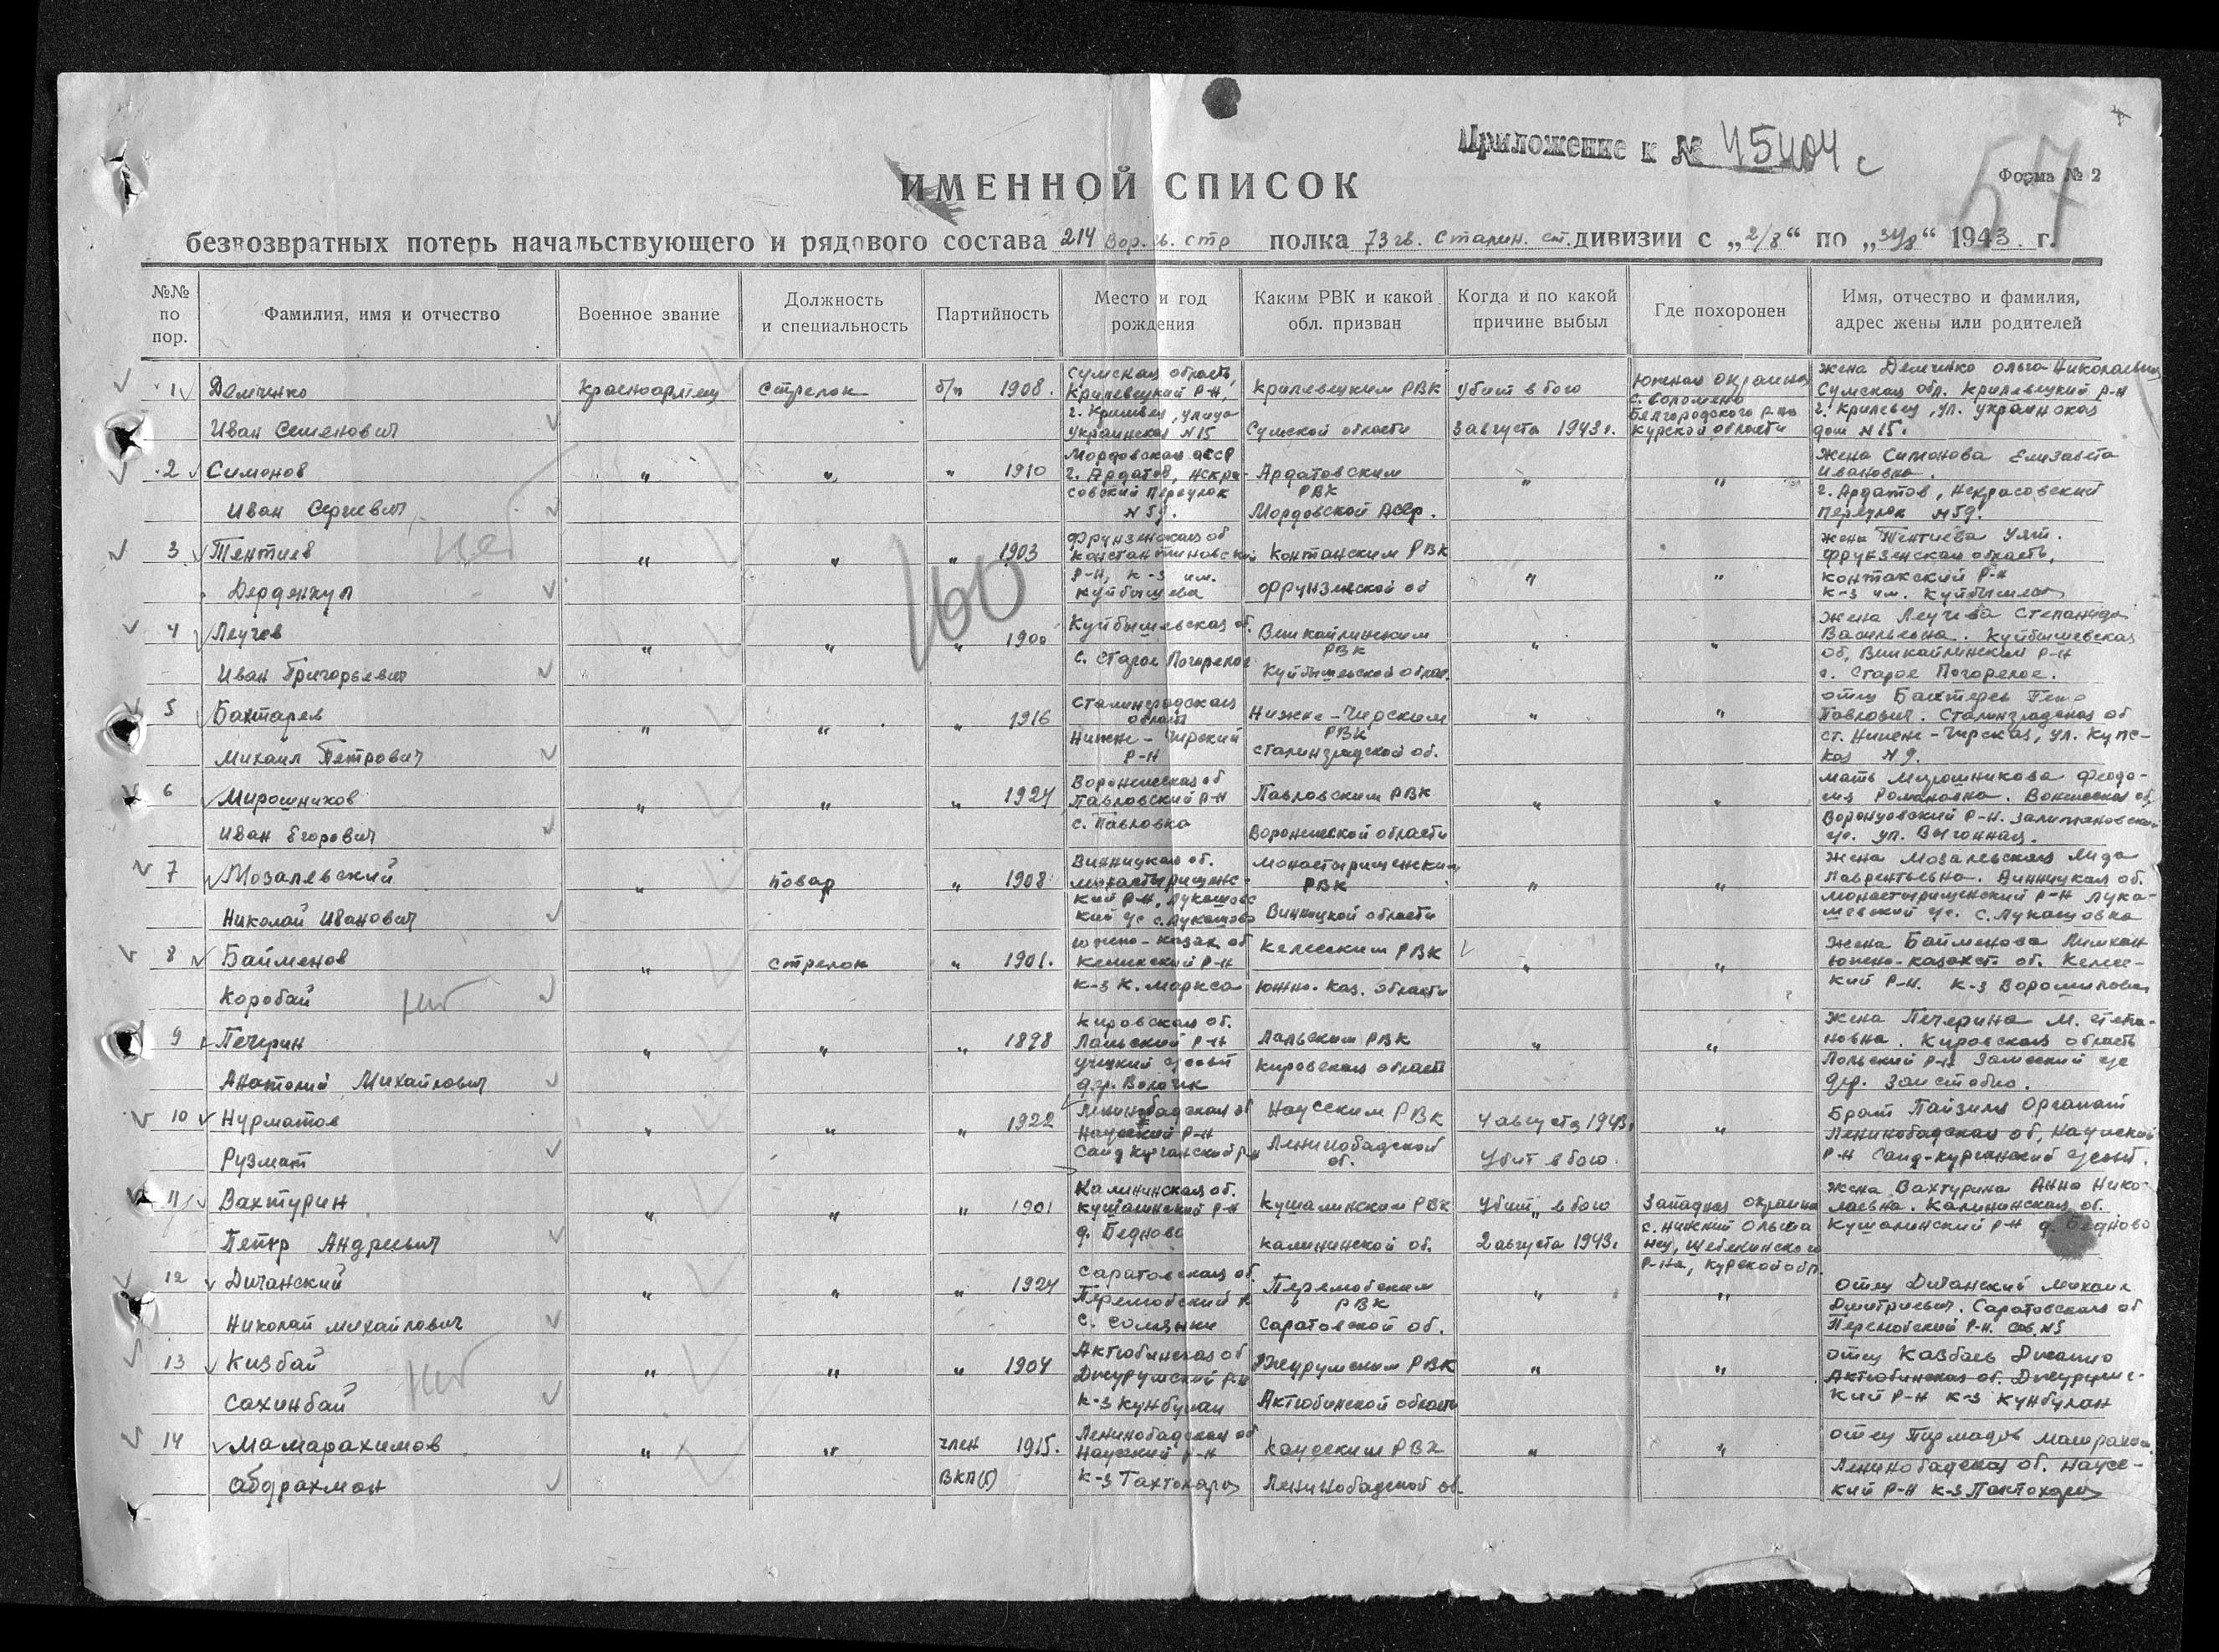 Приложение к № 45404 с
57
Форма № 2
ИМЕННОЙ СПИСОК
безвозвратных потерь начальствующего и рядового состава 214 Вор. гв. стр полка 73 гв. Сталин. ст. дивизии с „2/8“ по „31/8“ 1943 г.
№№ по пор.
Фамилия, имя и отчество
Военное звание
Должность и специальность
Партийность
Место и год рождения
Каким РВК и какой обл. призван
Когда и по какой причине выбыл
Где похоронен
Имя, отчество и фамилия, адрес жены или родителей
160
1 Демченко Иван Семенович
красноармеец
стрелок
б/п 1908.
Сумская область, Кролевецкий р-н, г. Кролевец, улица Украинская N 15
Кролевецким РВК Сумской области
Убит в бою 3 августа 1943 г.
Южная окраина с. Соломено Белгородского р-на Курской области
жена Демченко Ольга Николаевна Сумская обл. Кролевецкий р-н г. Кролевец, ул. Украинская дом N 15.
2 Симонов Иван Сергеевич
" " " 1910
Мордовская АССР г. Ардатов, Некрасовский переулок N 59.
Ардатовским РВК Мордовской АССР.
" "
Жена Симонова Елизавета Ивановна. г. Ардатов, Некрасовский переулок N 59.
3 Тентиев Дерденкул
нет
" " " 1903
Фрунзенская об Константиновский р-н, к-з им. Куйбышева
Контанским РВК Фрунзенской об
" "
жена Тентиева Уят. Фрунзенская область, контакский р-н к-з им. Куйбышева
4 Леучев Иван Григорьевич
" " " 1900
Куйбышевская об. с. Старое Погорелое
Вишкайлинским РВК Куйбышевской облас.
" "
жена Леучева Степанида Васильевна. Куйбышевская об, Вишкайлинский р-н с. Старое Погорелое.
5 Бахтарев Михаил Петрович
" " " 1916
Сталинградская область Нижне-Чирский р-н
Нижне-Чирским РВК Сталинградской об.
" "
отец Бахтерев Павлович. Сталинградская об ст. Нижне-Чирская, ул. N 9.
6 Мирошников Иван Егорович
" " " 1924
Воронежская об Павловский р-н с. Павловка
Павловским РВК Воронежской области
" "
мать Мирошникова Романовна. Воронцовский р-н. ул. Выгонная.
7 Мозалевский Николай Иванович
" повар " 1908
Винницкая об. Монастырищенский р-н, Лукашовский с/с с. Лукашово
Монастырищенским РВК Винницкой области
" "
жена Мозалевская Лида Лаврентьевна. Винницкая об. Монастырищенский р-н Лукашевский с/с. с. Лукашовка
8 Байменов Коробай
нет
" стрелок " 1901.
Южно-Казах. об Келесский р-н к-з К. Маркса
Келесским РВК Южно-Каз. области
" "
жена Байменова Южно-Казахст. об. Келесский р-н. к-з Ворошилова
9 Печерин Анатолий Михайлович
" " " 1898
Кировская об. Лальский р-н Учецкий с/совет дер. Волочик
Лальским РВК Кировская область
" "
Жена Печерина М. Степановна. Кировская область Лольский р-н с/с дер.
10 Нурматов Рузмат
" " " 1922
Ленинобадская об Науский р-н Саид Курганский
Науским РВК Ленинобадской об.
4 августа 1943. Убит в бою.
"
Брат Пайзиля Ленинобадская об, Науской р-н Саид-Курганский с/совет.
11 Вахтурин Петр Андреевич
" " " 1901
Калининская об. Кушалинский р-н д. Бедново
Кушалинским РВК Калининской об.
Убит в бою 2 августа 1943.
Западная окраина с. Нижний Ольшанец, Шебекинского р-на, Курской обл.
жена Вахтурина Анна Николаевна. Калининская об. Кушалинский р-н д. Бедново
12 Дичанский Николай Михайлович
" " " 1924
Саратовская об. Перелюбский р с. Солянки
Перелюбским РВК Саратовской об.
" "
отец Дичанский Михаил Дмитриевич. Саратовская об Перелюбский р-н. сов. N 5
13 Кизбай Сахинбай
нет
" " " 1904
Актюбинская об Джурумский р-н к-з Кунбулан
Джурумским РВК Актюбинской области
" "
отец Казбаев Актюбинская об. Джурумский р-н к-з Кунбулан
14 Мамарахимов Абдрахман
" " член ВКП(б) 1915.
Ленинобадская об Науский р-н к-з Тахтокарш
Науским РВК Ленинобадской об.
" "
отец Ленинобадская об. Науский р-н